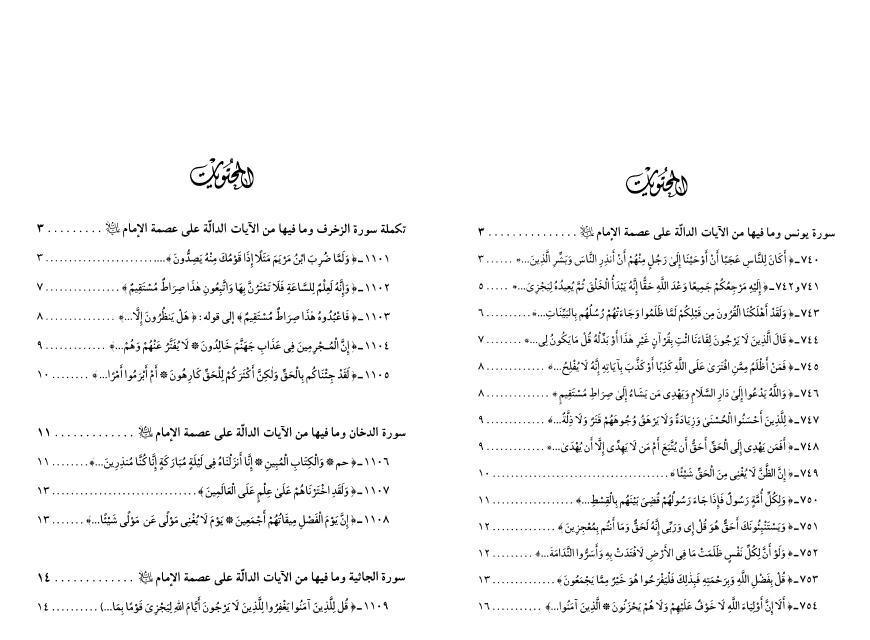 المحتويات
سورة يونس وما فيها من الآيات الدالّة على عصمة الإمام ............... ٣
٧٤٠ـ ﴿ أَكَانَ لِلنَّاسِ عَجَبًا أَنْ أَوْحَيْنَا إِلَىٰ رَجُلٍ مِنْهُمْ أَنْ أَنذِرِ النَّاسَ وَبَشِّرِ الَّذِينَ...﴾ ..... ٣
٧٤١و٧٤٢ـ﴿ إِلَيْهِ مَرْجِعُكُمْ جَمِيعًا وَعْدَ اللَّهِ حَقًّا إِنَّهُ يَبْدَأُ الْخَلْقَ ثُمَّ يُعِيدُهُ لِيَجْزِيَ...﴾ ..... ٥
٧٤٣ـ﴿ وَلَقَدْ أَهْلَكْنَا الْقُرُونَ مِن قَبْلِكُمْ لَمَّا ظَلَمُوا وَجَاءَتْهُمْ رُسُلُهُم بِالْبَيِّنَاتِ...﴾......... ٦
٧٤٤ـ﴿ قَالَ الَّذِينَ لَا يَرْجُونَ لِقَاءَنَا ائْتِ بِقُرْآنٍ غَيْرِ هَٰذَا أَوْ بَدِّلْهُ قُلْ مَا يَكُونُ لِي...﴾........ ٧
٧٤٥ـ﴿ فَمَنْ أَظْلَمُ مِمَّنِ افْتَرَىٰ عَلَى اللَّهِ كَذِبًا أَوْ كَذَّبَ بِآيَاتِهِ إِنَّهُ لَا يُفْلِحُ...﴾ ............. ٨
٧٤٦ـ﴿ وَاللَّهُ يَدْعُوا إِلَىٰ دَارِ السَّلَامِ وَيَهْدِي مَن يَشَاءُ إِلَىٰ صِرَاطٍ مُسْتَقِيمٍ ﴾ ............ ٨
٧٤٧ـ﴿ لِلَّذِينَ أَحْسَنُوا الْحُسْنَىٰ وَزِيَادَةٌ وَلَا يَرْهَقُ وُجُوهَهُمْ قَتَرٌ وَلَا ذِلَّةٌ...﴾............. ٩
٧٤٨ـ﴿ أَفَمَن يَهْدِي إِلَى الْحَقِّ أَحَقُّ أَن يُتَّبَعَ أَمْ مَن لَا يَهِدِّي إِلَّا أَن يُهْدَىٰ...﴾............ ٩
٧٤٩ـ﴿ إِنَّ الظَّنَّ لَا يُغْنِي مِنَ الْحَقِّ شَيْئًا ﴾.................................... ١٠
٧٥٠ـ﴿ وَلِكُلِّ أُمَّةٍ رَسُولٌ فَإِذَا جَاءَ رَسُولُهُمْ قُضِيَ بَيْنَهُم بِالْقِسْطِ...﴾.................. ١١
٧٥١ـ﴿ وَيَسْتَنْبِئُونَكَ أَحَقٌّ هُوَ قُلْ إِي وَرَبِّي إِنَّهُ لَحَقٌّ وَمَا أَنتُم بِمُعْجِزِينَ ﴾.............. ١٢
٧٥٢ـ﴿ وَلَوْ أَنَّ لِكُلِّ نَفْسٍ ظَلَمَتْ مَا فِي الْأَرْضِ لَافْتَدَتْ بِهِ وَأَسَرُّوا النَّدَامَةَ...﴾.......... ١٢
٧٥٣ـ﴿ قُلْ بِفَضْلِ اللَّهِ وَبِرَحْمَتِهِ فَبِذَٰلِكَ فَلْيَفْرَحُوا هُوَ خَيْرٌ مِمَّا يَجْمَعُونَ ﴾............. ١٣
٧٥٤ـ﴿ أَلَا إِنَّ أَوْلِيَاءَ اللَّهِ لَا خَوْفٌ عَلَيْهِمْ وَلَا هُمْ يَحْزَنُونَ ۞ الَّذِينَ آمَنُوا...﴾ .......... ١٦
المحتويات
تكملة سورة الزخرف وما فيها من الآيات الدالّة على عصمة الإمام ......... ٣
١١٠١ـ﴿ وَلَمَّا ضُرِبَ ابْنُ مَرْيَمَ مَثَلًا إِذَا قَوْمُكَ مِنْهُ يَصِدُّونَ ﴾........................... ٣
١١٠٢ـ﴿ وَإِنَّهُ لَعِلْمٌ لِلسَّاعَةِ فَلَا تَمْتَرُنَّ بِهَا وَاتَّبِعُونِ هَٰذَا صِرَاطٌ مُسْتَقِيمٌ ﴾................ ٧
١١٠٣ـ﴿ فَاعْبُدُوهُ هَٰذَا صِرَاطٌ مُسْتَقِيمٌ ﴾ إلى قوله : ﴿ هَلْ يَنظُرُونَ إِلَّا...﴾ ............... ٨
١١٠٤ـ﴿ إِنَّ الْمُجْرِمِينَ فِي عَذَابِ جَهَنَّمَ خَالِدُونَ ۞ لَا يُفَتَّرُ عَنْهُمْ وَهُمْ...﴾ ............ ٩
١١٠٥ـ﴿ لَقَدْ جِئْنَاكُم بِالْحَقِّ وَلَٰكِنَّ أَكْثَرَكُمْ لِلْحَقِّ كَارِهُونَ ۞ أَمْ أَبْرَمُوا أَمْرًا...﴾ ........ ١٠
سورة الدخان وما فيها من الآيات الدالّة على عصمة الإمام ............. ١١
١١٠٦ـ﴿ حم ۞ وَالْكِتَابِ الْمُبِينِ ۞ إِنَّا أَنزَلْنَاهُ فِي لَيْلَةٍ مُبَارَكَةٍ إِنَّا كُنَّا مُنذِرِينَ...﴾........ ١١
١١٠٧ـ﴿ وَلَقَدِ اخْتَرْنَاهُمْ عَلَىٰ عِلْمٍ عَلَى الْعَالَمِينَ ﴾ ............................... ١٣
١١٠٨ـ﴿ إِنَّ يَوْمَ الْفَصْلِ مِيقَاتُهُمْ أَجْمَعِينَ ۞ يَوْمَ لَا يُغْنِي مَوْلًى عَن مَوْلًى شَيْئًا...﴾ ....... ١٣
سورة الجاثية وما فيها من الآيات الدالّة على عصمة الإمام ............. ١٤
١١٠٩ـ﴿ قُل لِلَّذِينَ آمَنُوا يَغْفِرُوا لِلَّذِينَ لَا يَرْجُونَ أَيَّامَ اللهِ لِيَجْزِيَ قَوْمًا بِمَا...) .......... ١٤